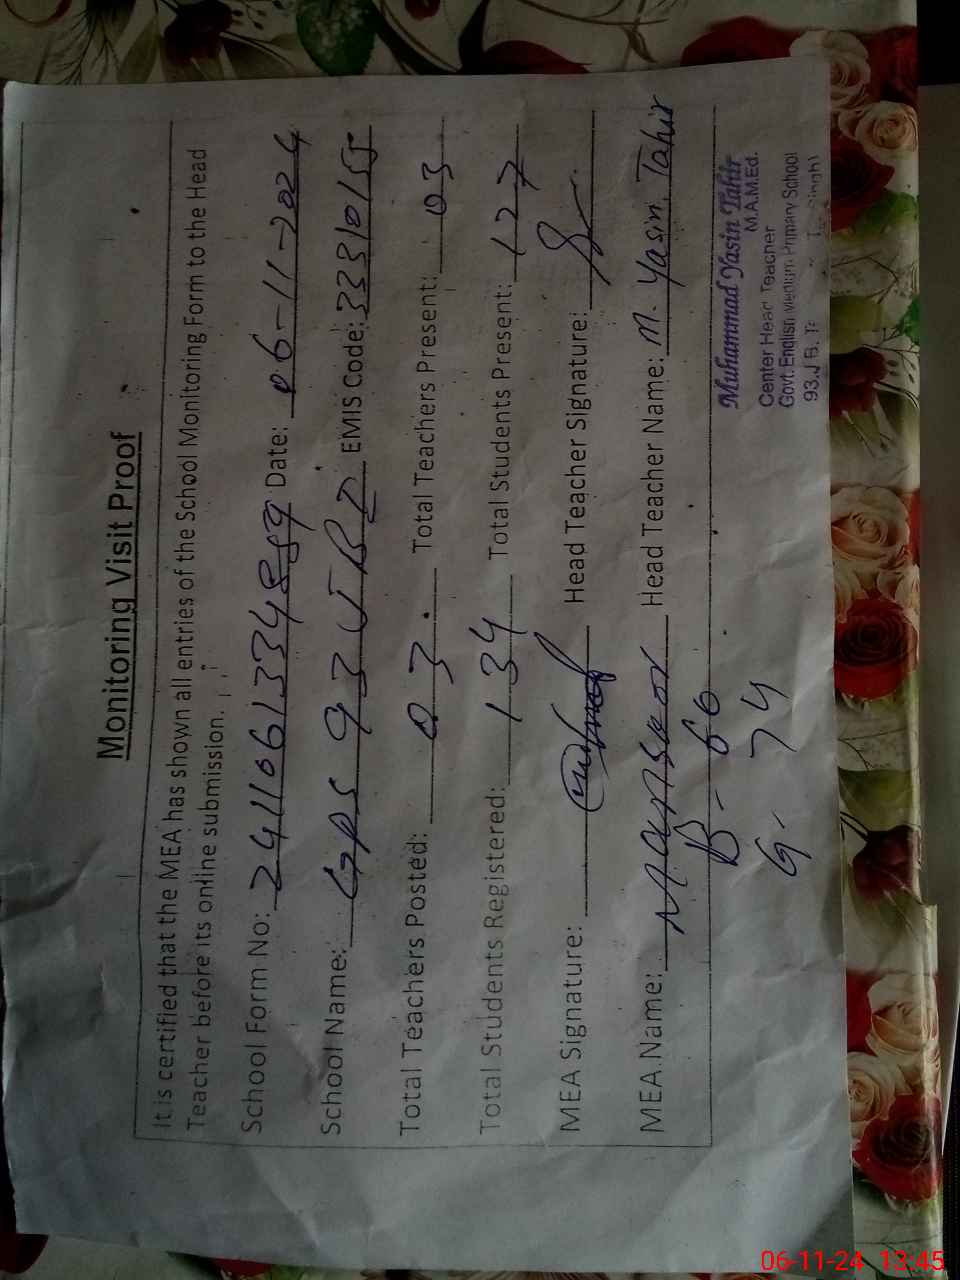 Monitoring Visit Proof
It is certified that the MEA has shown all entries of the School Monitoring Form to the Head
Teacher before its online submission.
School Form No: 241106133348589 Date: 06-11-2024
School Name: GPS 93 JB I EMIS Code: 33310155
Total Teachers Posted: 03 Total Teachers Present: 03
Total Students Registered: 134 Total Students Present: 127
MEA Signature: Head Teacher Signature:
MEA Name: Head Teacher Name: M. Yasin Tahir
B- 60
G. 74
Muhammad Yasin Tahir
M.A.M.Ed.
Center Head Teacher
Govt. English Medium Primary School
93.J.B. T. Singh)
06-11-24 13:45